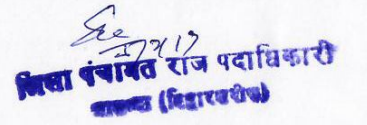 जिला पंचायत राज पदाधिकारी
नालन्दा (बिहारशरीफ)